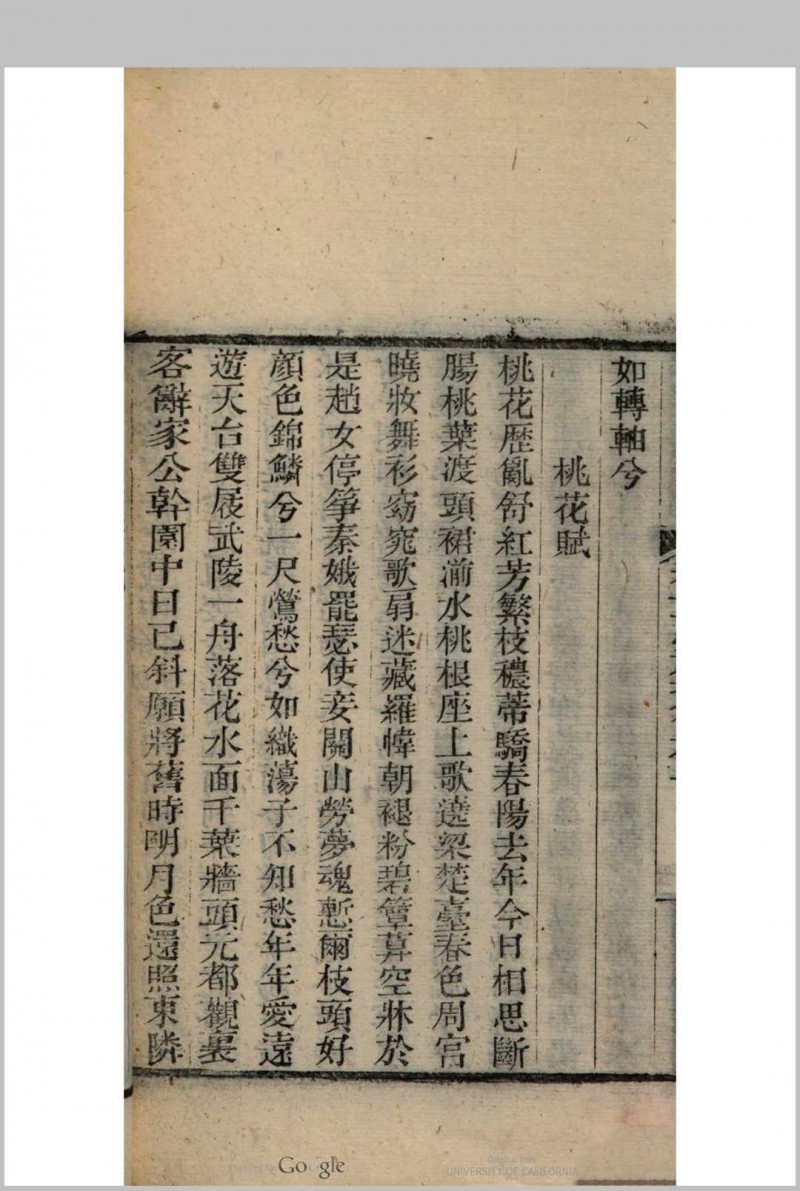 如轉軸兮
桃花賦
桃花歷亂舒紅芳繁枝穠蒂驕春陽去年今日相思斷
腸桃葉渡頭裙湔水桃根座上歌遶梁楚臺春色周宮
曉妝舞衫窈窕歌扇迷藏羅幃朝褪粉碧簟算空牀於
是趙女停箏秦娥罷瑟使妾關山勞夢魂慙爾枝頭好
顏色錦鱗兮一尺鶯愁兮如織蕩子不知愁年年愛遠
遊天台雙屐武陵一舟落花水面千葉牆頭元都觀裏
客辭家公幹園中日已斜願將舊時明月色還照東隣
Google
UNIVERSITY OF CALIFORNIA